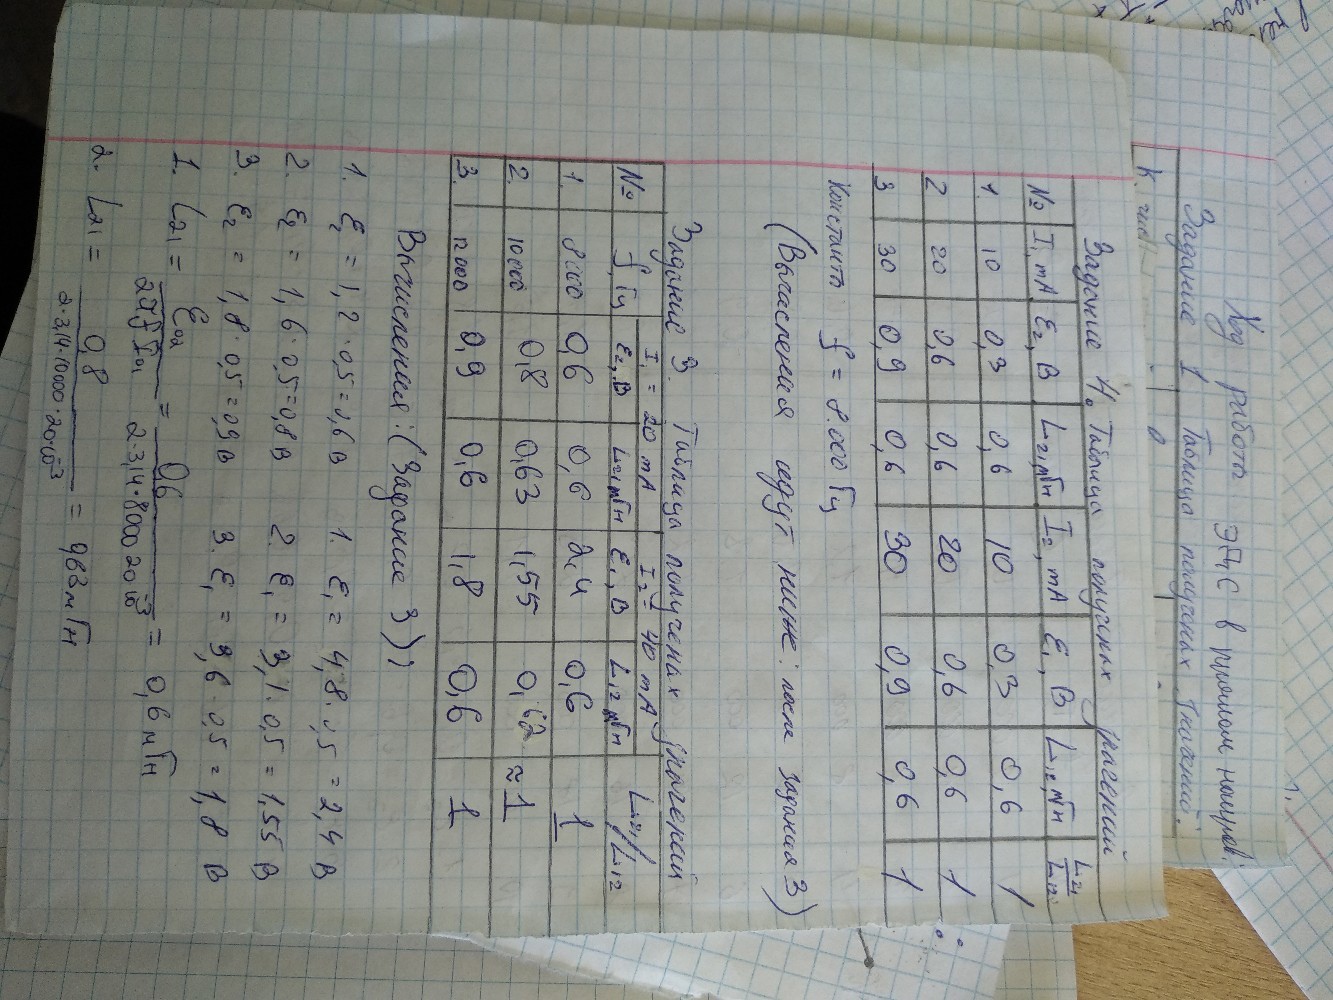 Ход работы ЭДС в
Задание 1 Таблица полученых значений.
Задание 4. Таблица полученых значений
№ I₁, mA ℰ₂, В L₂₁, мГн I₂, mA ℰ₁, В L₁₂, мГн L₂₁/L₁₂
1. 10 0,3 0,6 10 0,3 0,6 1
2 20 0,6 0,6 20 0,6 0,6 1
3 30 0,9 0,6 30 0,9 0,6 1
Константа f = 8.000 Гц
(Вычисления идут ниже: после задания 3)
Задание 3. Таблица полученых значений
№ f, Гц I₁ = 20 mA I₂ = 40 mA L₂₁/L₁₂
ℰ₂, В L₂₁ мГн ℰ₁, В L₁₂ мГн
1. 8000 0,6 0,6 2,4 0,6 1
2. 10000 0,8 0,63 1,55 0,62 ≈1
3. 12000 0,9 0,6 1,8 0,6 1
Вычисления: (Задание 3);
1. ℰ₂ = 1,2·0,5 = 0,6 В 1. ℰ₁ = 4,8·0,5 = 2,4 В
2. ℰ₂ = 1,6·0,5 = 0,8 В 2. ℰ₁ = 3,1·0,5 = 1,55 В
3. ℰ₂ = 1,8·0,5 = 0,9 В 3. ℰ₁ = 3,6·0,5 = 1,8 В
1. L₂₁ = ℰ₀₂ / 2πf I₀₁ = 0,6 / 2·3,14·8000·20·10⁻³ = 0,6 мГн
2. L₂₁ = 0,8 / 2·3,14·10000·20·10⁻³ = 0,63 мГн